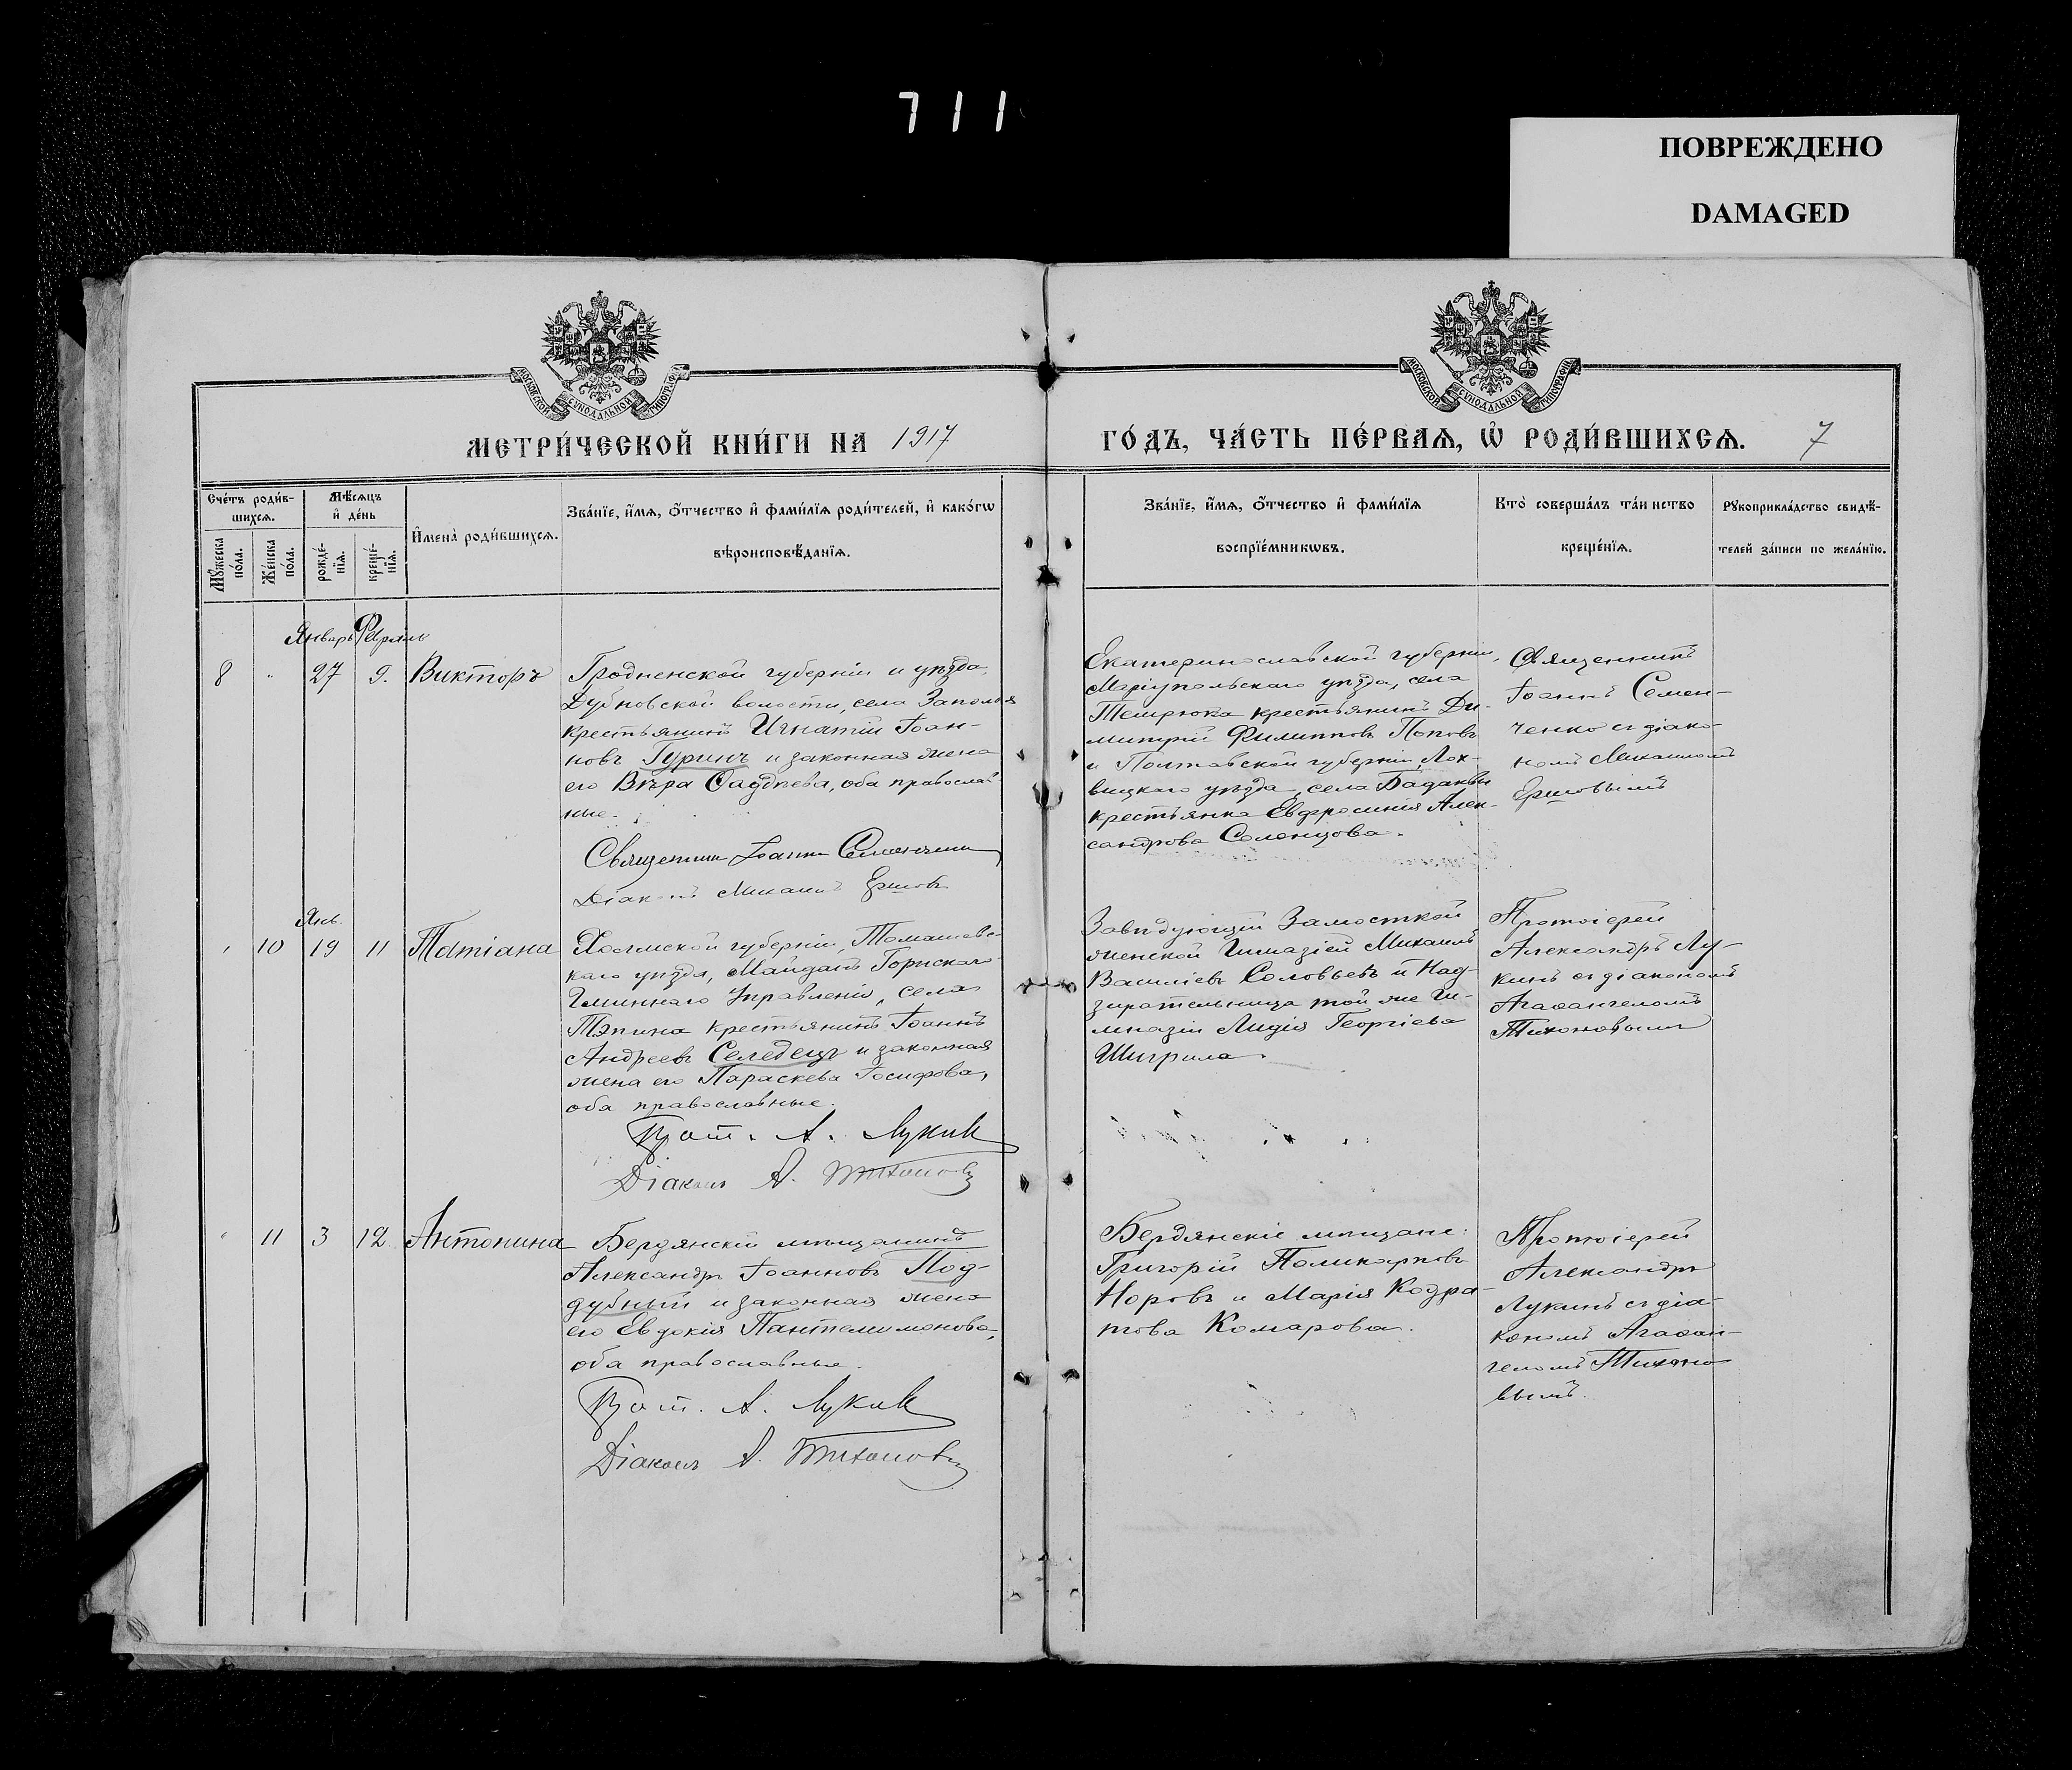 711
ПОВРЕЖДЕНО
DAMAGED
МОСКОВСКОЙ СУНОДАЛЬНОЙ ТИПОГРАФІИ
МОСКОВСКОЙ СУНОДАЛЬНОЙ ТИПОГРАФІИ
МЕТРИ́ЧЕСКОЙ КНИ́ГИ НА 1917
ГО́ДЪ, ЧА́СТЬ ПЕ́РВАѦ, Ѡ҆ РОДИ́ВШИХСѦ. 7
Сче́тъ роди́в-
шихсѧ.
Мꙋ́жеска по́ла.
Же́нска по́ла.
Мѣ́сѧцъ
и҆ де́нь
рожде́-
нїѧ.
креще́-
нїѧ.
И҆мена̀ роди́вшихсѧ.
Зва́нїе, и҆́мѧ, ѻ҆́тчество и҆ фами́лїѧ роди́телей, и҆ како́гѡ
вѣроисповѣ́данїѧ.
Зва́нїе, и҆́мѧ, ѻ҆́тчество и҆ фами́лїѧ
воспрїе́мникѡвъ.
Кто̀ соверша́лъ та́инство
креще́нїѧ.
Рꙋкоприкла́дство свидѣ́-
телей за́писи по жела́нїю.
Январь Февраль
8 " 27 9. Викторъ
Гродненской губерніи и уѣзда,
Дубновской волости, села Заполья
крестьянинъ Игнатій Іоан-
новъ Гуринъ и законная жена
его Вѣра Фаддѣева, оба православ
ные.
Священникъ Іоаннъ Семенченко
Діаконъ Михаилъ Ершовъ
Екатеринославской губерніи,
Маріупольскаго уѣзда, села
Темрюка крестьянинъ Ди-
митрій Филипповъ Поповъ
и Полтавской губерніи, Лох-
вицкаго уѣзда, села
крестьянка Евфросинія Алек-
сандрова Селенцова.
Священникъ
Іоаннъ Семен-
ченко съ діако-
номъ Михаиломъ
Ершовымъ
Янв.
" 10 19 11 Татіана
Холмской губерніи, Томашевс-
каго уѣзда, Майданъ Горнскаго
Гминнаго Управленія, села
Тэпина крестьянинъ Іоаннъ
Андреевъ Селедецъ и законная
жена его Параскева Іосифова,
оба православные.
Прот. А. Лукинъ
Діаконъ А. Тихоновъ
Завѣдующій Замосткой
женской Гимназіей Михаилъ
Василіевъ Соловьевъ и Над-
зирательница той же Ги-
мназіи Лидія Георгіева
Шигрила.
Протоіерей
Александръ Лу-
кинъ съ діакономъ
Агаѳангеломъ
Тихоновымъ
" 11 3 12. Антонина
Бердянскій мѣщанинъ
Александръ Іоанновъ Под-
дубный и законная жена
его Евдокія Пантелимонова,
оба православные.
Прот. А. Лукинъ
Діаконъ А. Тихоновъ
Бердянскіе мѣщане:
Григорій Поликарповъ
Норовъ и Марія Кодра-
това Комарова.
Протоіерей
Александръ
Лукинъ съ діа-
кономъ Агаѳан-
геломъ Тихоно
вымъ.